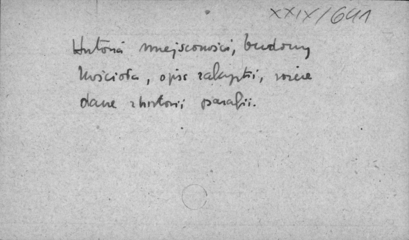 XXIX/641
Historia miejscowości, budowy
kościoła, opis zakrystii,
dane z historii parafii.